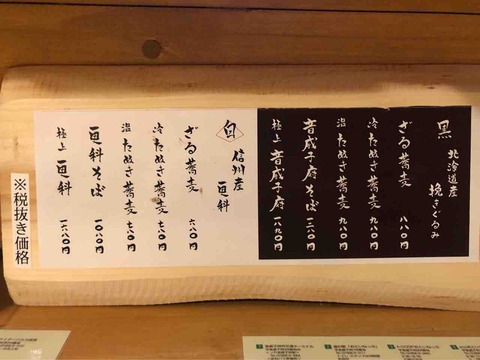 黒
北海道産
挽きぐるみ
ざる蕎麦 八八〇円
冷たぬき蕎麦 九八〇円
温たぬき蕎麦 九八〇円
音威子府そば 一二八〇円
極上 音威子府 一八八〇円
白
信州産
更科
ざる蕎麦 六八〇円
冷たぬき蕎麦 七八〇円
温たぬき蕎麦 七八〇円
更科そば 一〇八〇円
極上 更科 一六八〇円
※税抜き価格